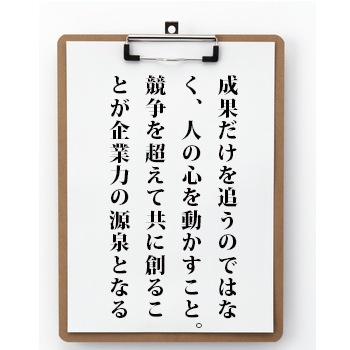 成果だけを追うのではな
く、人の心を動かすこと。
競争を超えて共に創るこ
とが企業力の源泉となる